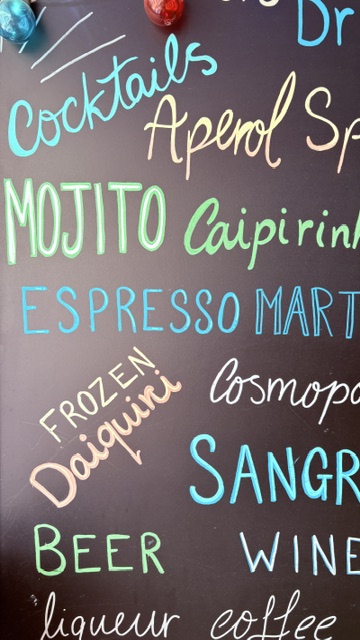 Dr
Cocktails
Aperol Sp
MOJITO Caipirin
ESPRESSO MART
FROZEN
Daiquiri Cosmopo
SANGR
BEER WINE
liqueur coffee